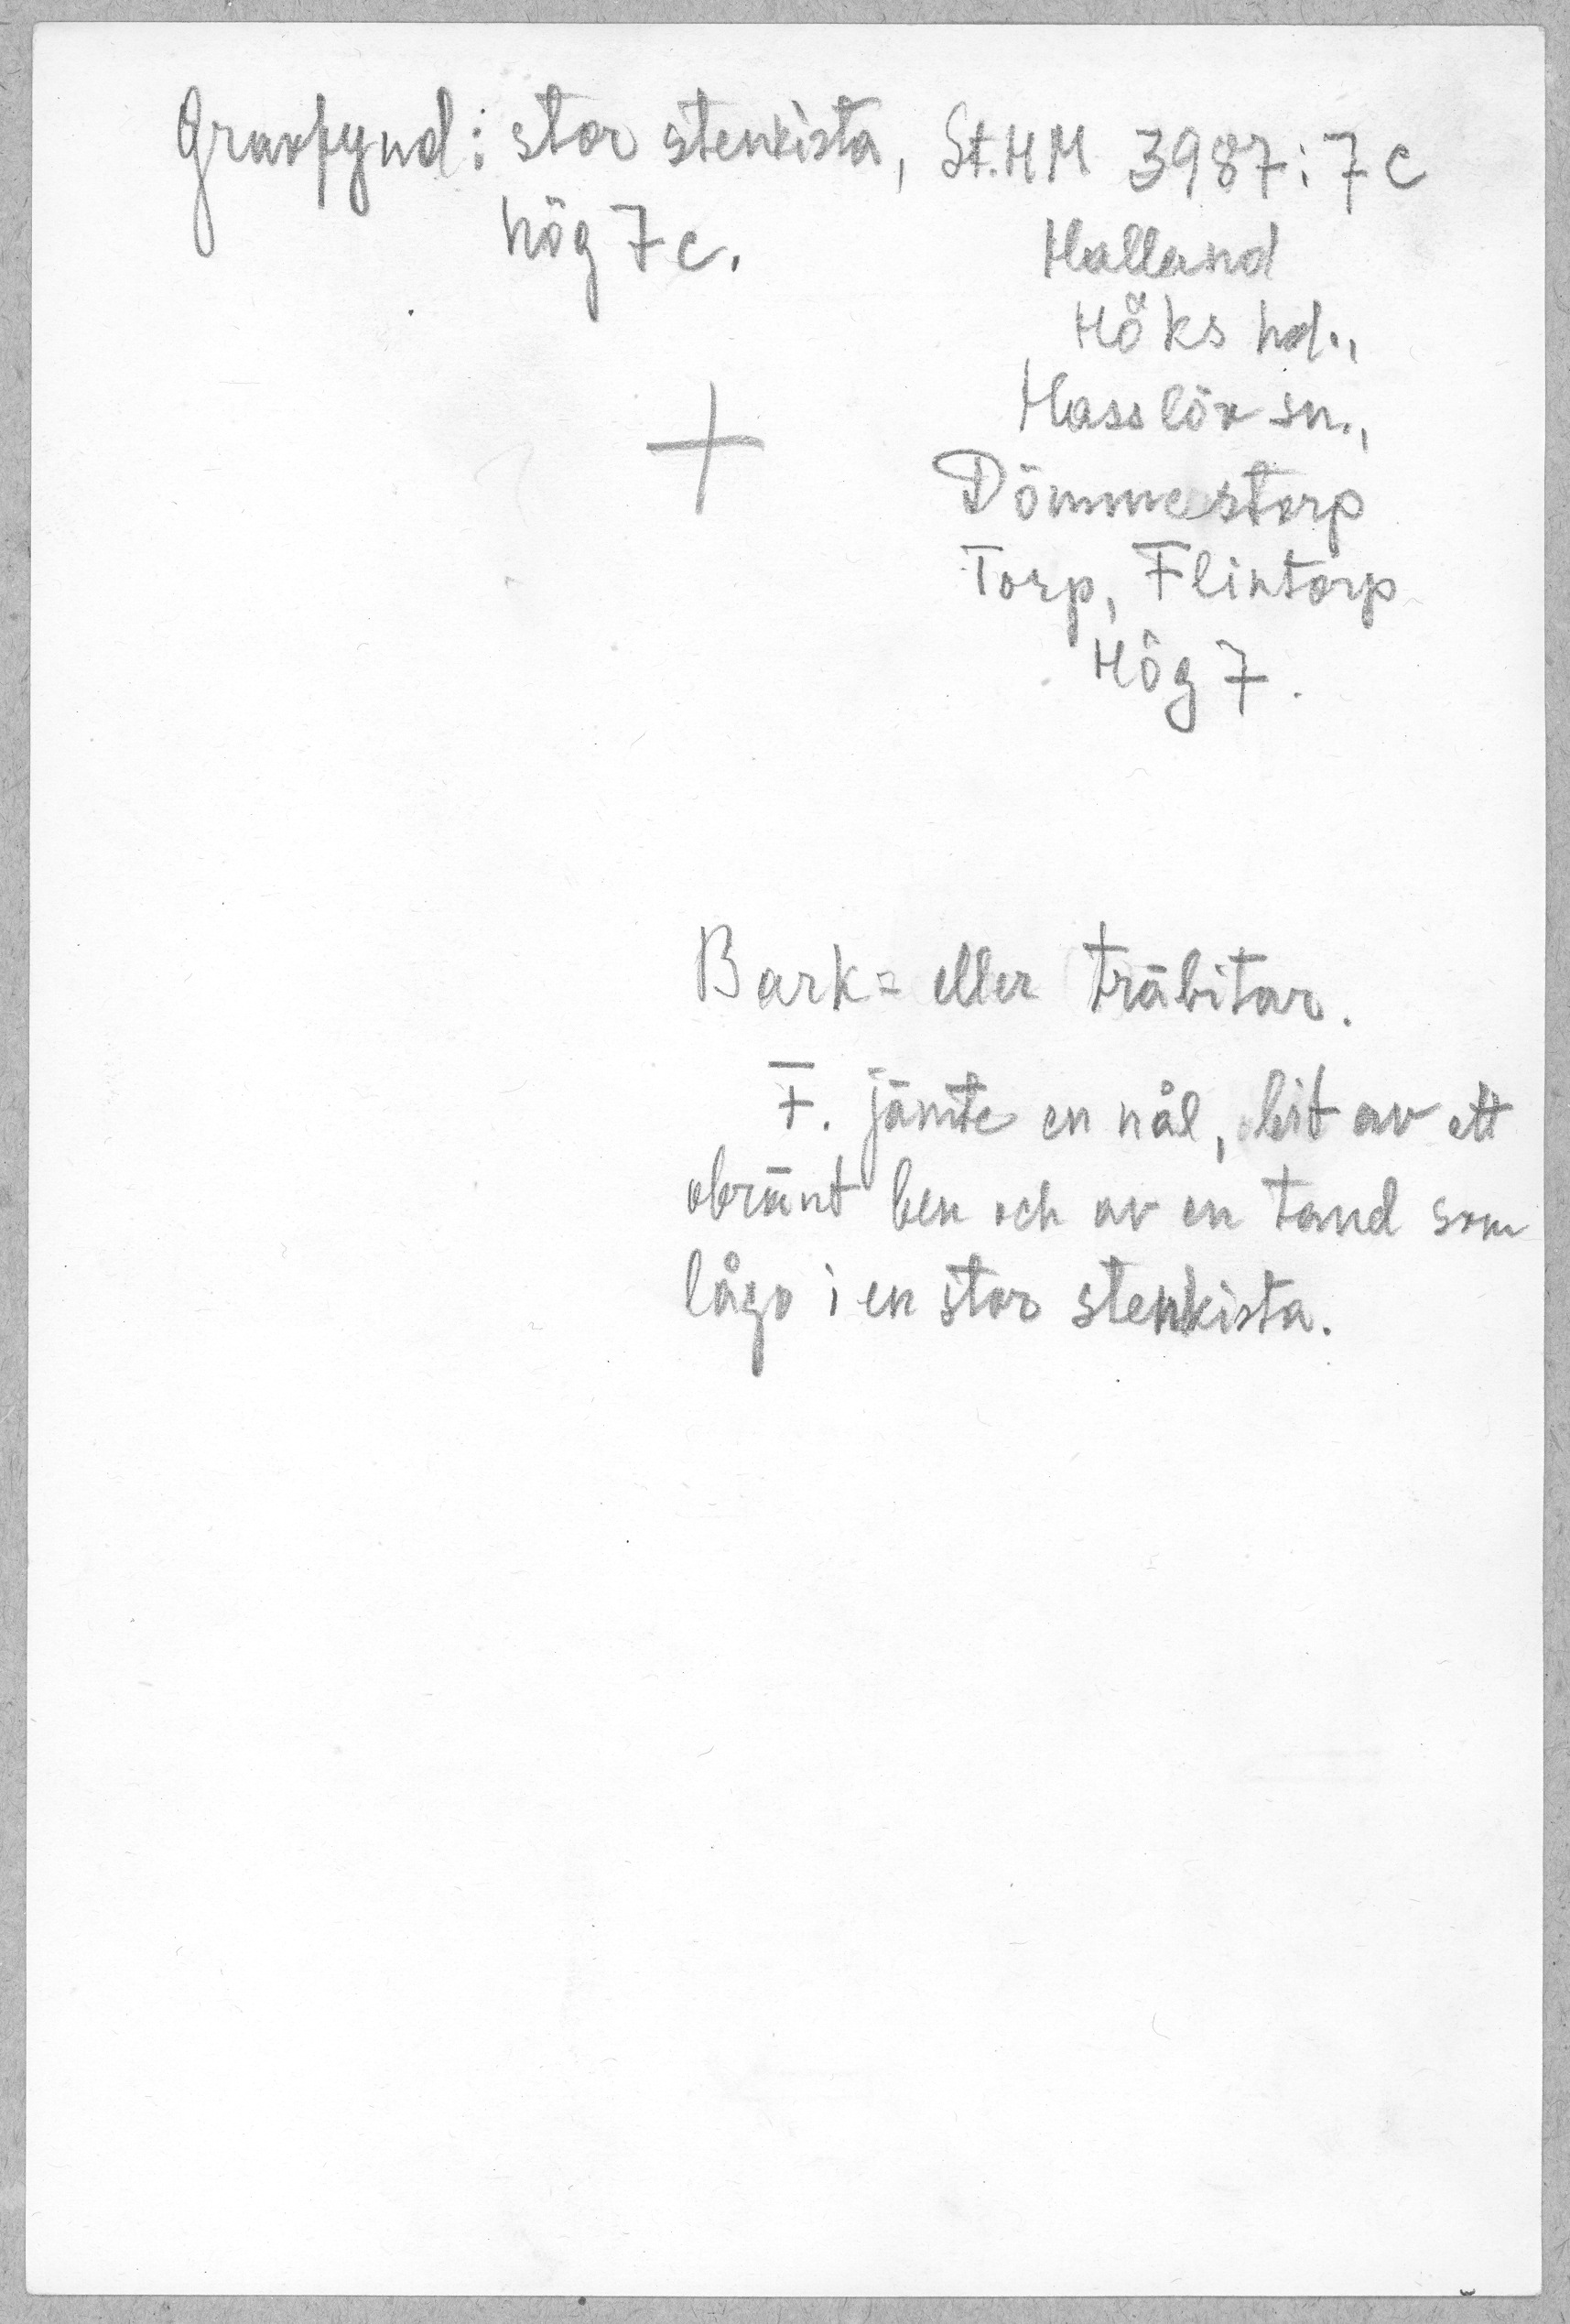 Gravfynd: stor stenkista,
hög 7c.
St.HM 3987:7c
Halland
Höks hd.,
Hasslöv sn.,
Dömmestorp
Torp, Flintorp
Hög 7.
+
Bark= eller träbitar.
F. jämte en nål, bit av ett
obränt ben och av en tand som
lågo i en stor stenkista.